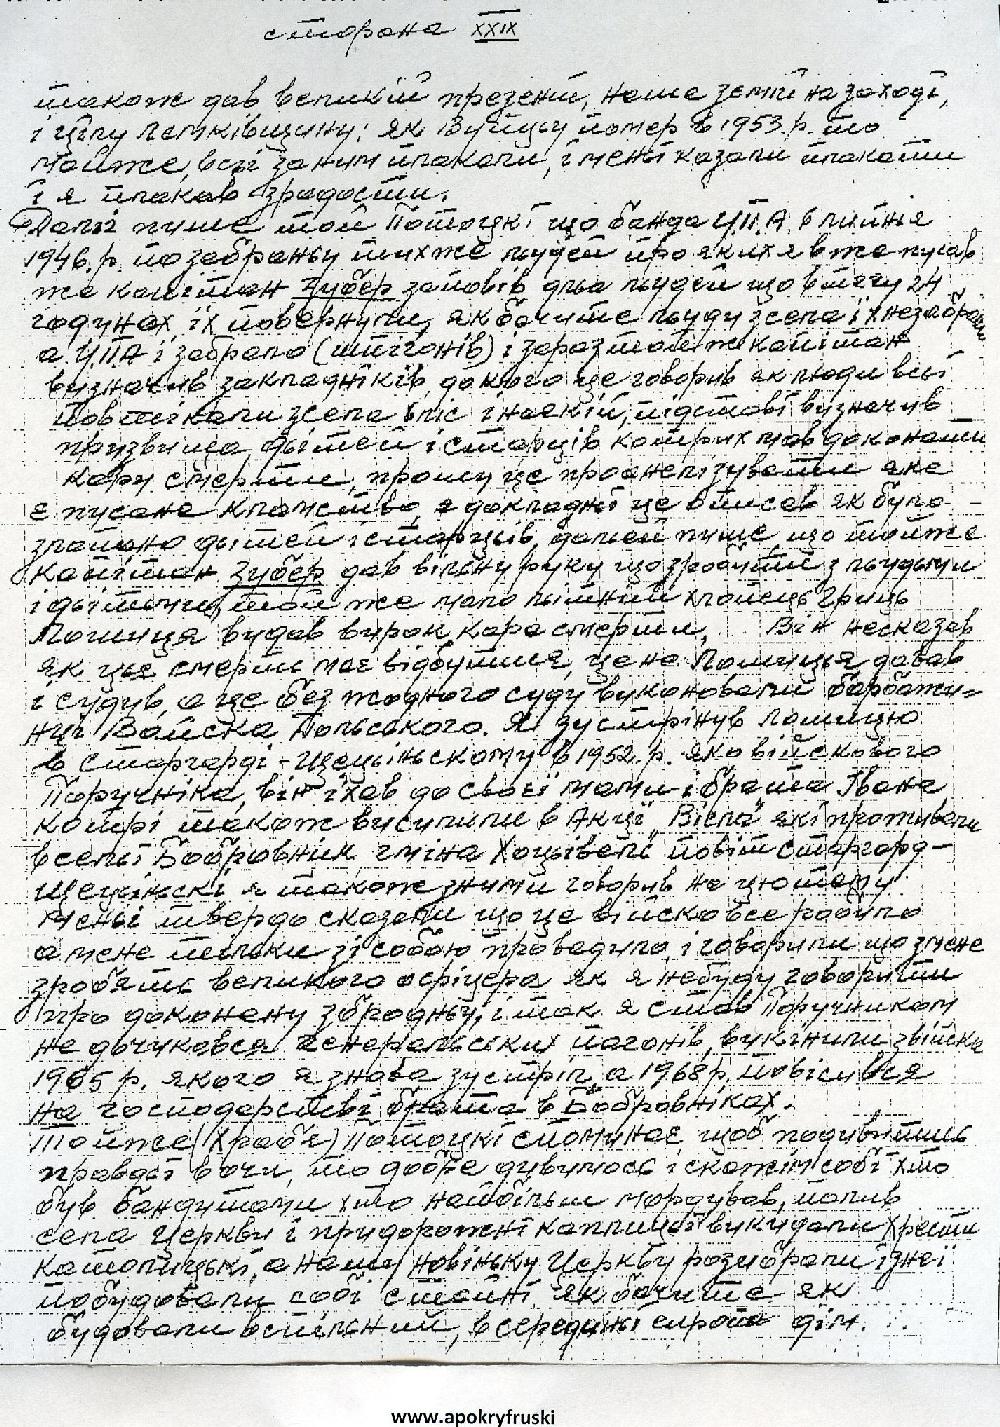 сторона XXIX
також дав великій презент, наше землі на заході,
і цілу Лемківщину: як Вуйцьу помер в 1953 р. то
майже, всі за ним плакали, і мені казали плакати
і я плакав зрадости.
Далі пише той Потоцкі що банда У.П.А. 6 липнія
1946. р. по забраньу тих же льудей про яких я вже писав
же капітан Зубер заповів дльа льудей що втегу 24
годинах їх повернути, як бачите льуду зсела їх незабрали
а У.П.А їзабрало (шпігонів) і заразтой ж капітан
визначив закладніків, докого це говорив як люди всі
повтікали зсела вліс інаякій, підставі визначив
призвища, дьітей істарців котрих мав доконати
кару смерти, прошу це проаналізувати яке
є писане кламство, я докладні це описав як було
злапано дьітей істарцьів, дальей пише, що тойже
капітан Зубер дав вільну руку що зробити з льудьми
ідьітьми, той же мало льітній хлопець Гриць
Поливця видав вирок, кара смерти, Він несказав
як цьа смерть має відбутися, це на Поливця давав
і судив, а це без жодного суду виконовали барбажи=
нці Войска Польського. Я зустрінув Поливцю
в Старгарді-Щецінському в 1952. р. яко військового
Поручніка, він їхав до своєї мами і брата Івана
котрі також висилили в Акції "Вісла" які проживали
в селі Бобровник гміна Хоцьівель повіт Старгард-
Щецінскі, я також зними говорив на цю тему
мені твердо сказали що це військо все робило
а мене тільки зі собою провадило, і говорили що змене
зроблять великого офіцера як я небуду говорити
про доконану збродньу, і так я став Поручником
не дочуковся генеральских погонів, викинули звійска
1965 р. якого я знова зустріл, а 1968 р, повісився
на господарстві брата в Бобровніках.
Тойже (Храбя) Потоцкі спомунає щоб подивитись
правдьі вочи, то добре дивимось і скажім собі хто
був бандитами хто найбільш мордував, палив
села Церкви і придорожні каплиці викидали Хрести
католицькі, а нашу новіньку Церкву розибрали ізнеї
побудовали собі стайні, як бачите як
будовали оспільний, в середині сирота дім.
www.apokryfruski